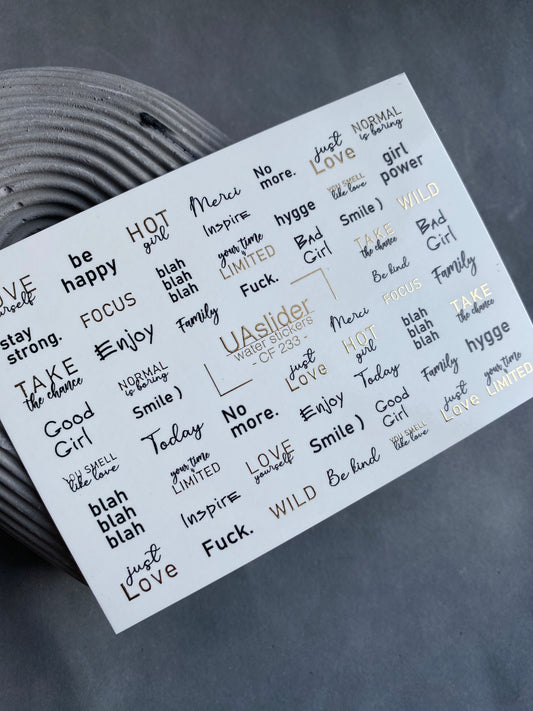 NORMAL
is boring
just
Love
No
more.
Merci
HOT
girl
be
happy
LOVE
yourself
girl
power
YOU SMELL
like love
hygge
InspirE
blah
blah
blah
FOCUS
stay
strong.
WILD
Smile )
BAD
Girl
your time
is
LIMITED
Fuck.
Family
Enjoy
TAKE
the chance
Bad
Girl
TAKE
the chance
Be kind
UAslider
water stickers
- CF 233 -
NORMAL
is boring
Smile )
Good
Girl
Family
FOCUS
Merci
HOT
girl
just
Love
No
more.
Today
YOU SMELL
like love
TAKE
the chance
blah
blah
blah
Today
Enjoy
LOVE
yourself
your time
is
LIMITED
blah
blah
blah
hygge
Family
Good
Girl
Smile )
WILD
InspirE
Fuck.
just
Love
your time
is
LIMITED
just
Love
YOU SMELL
like love
Be kind